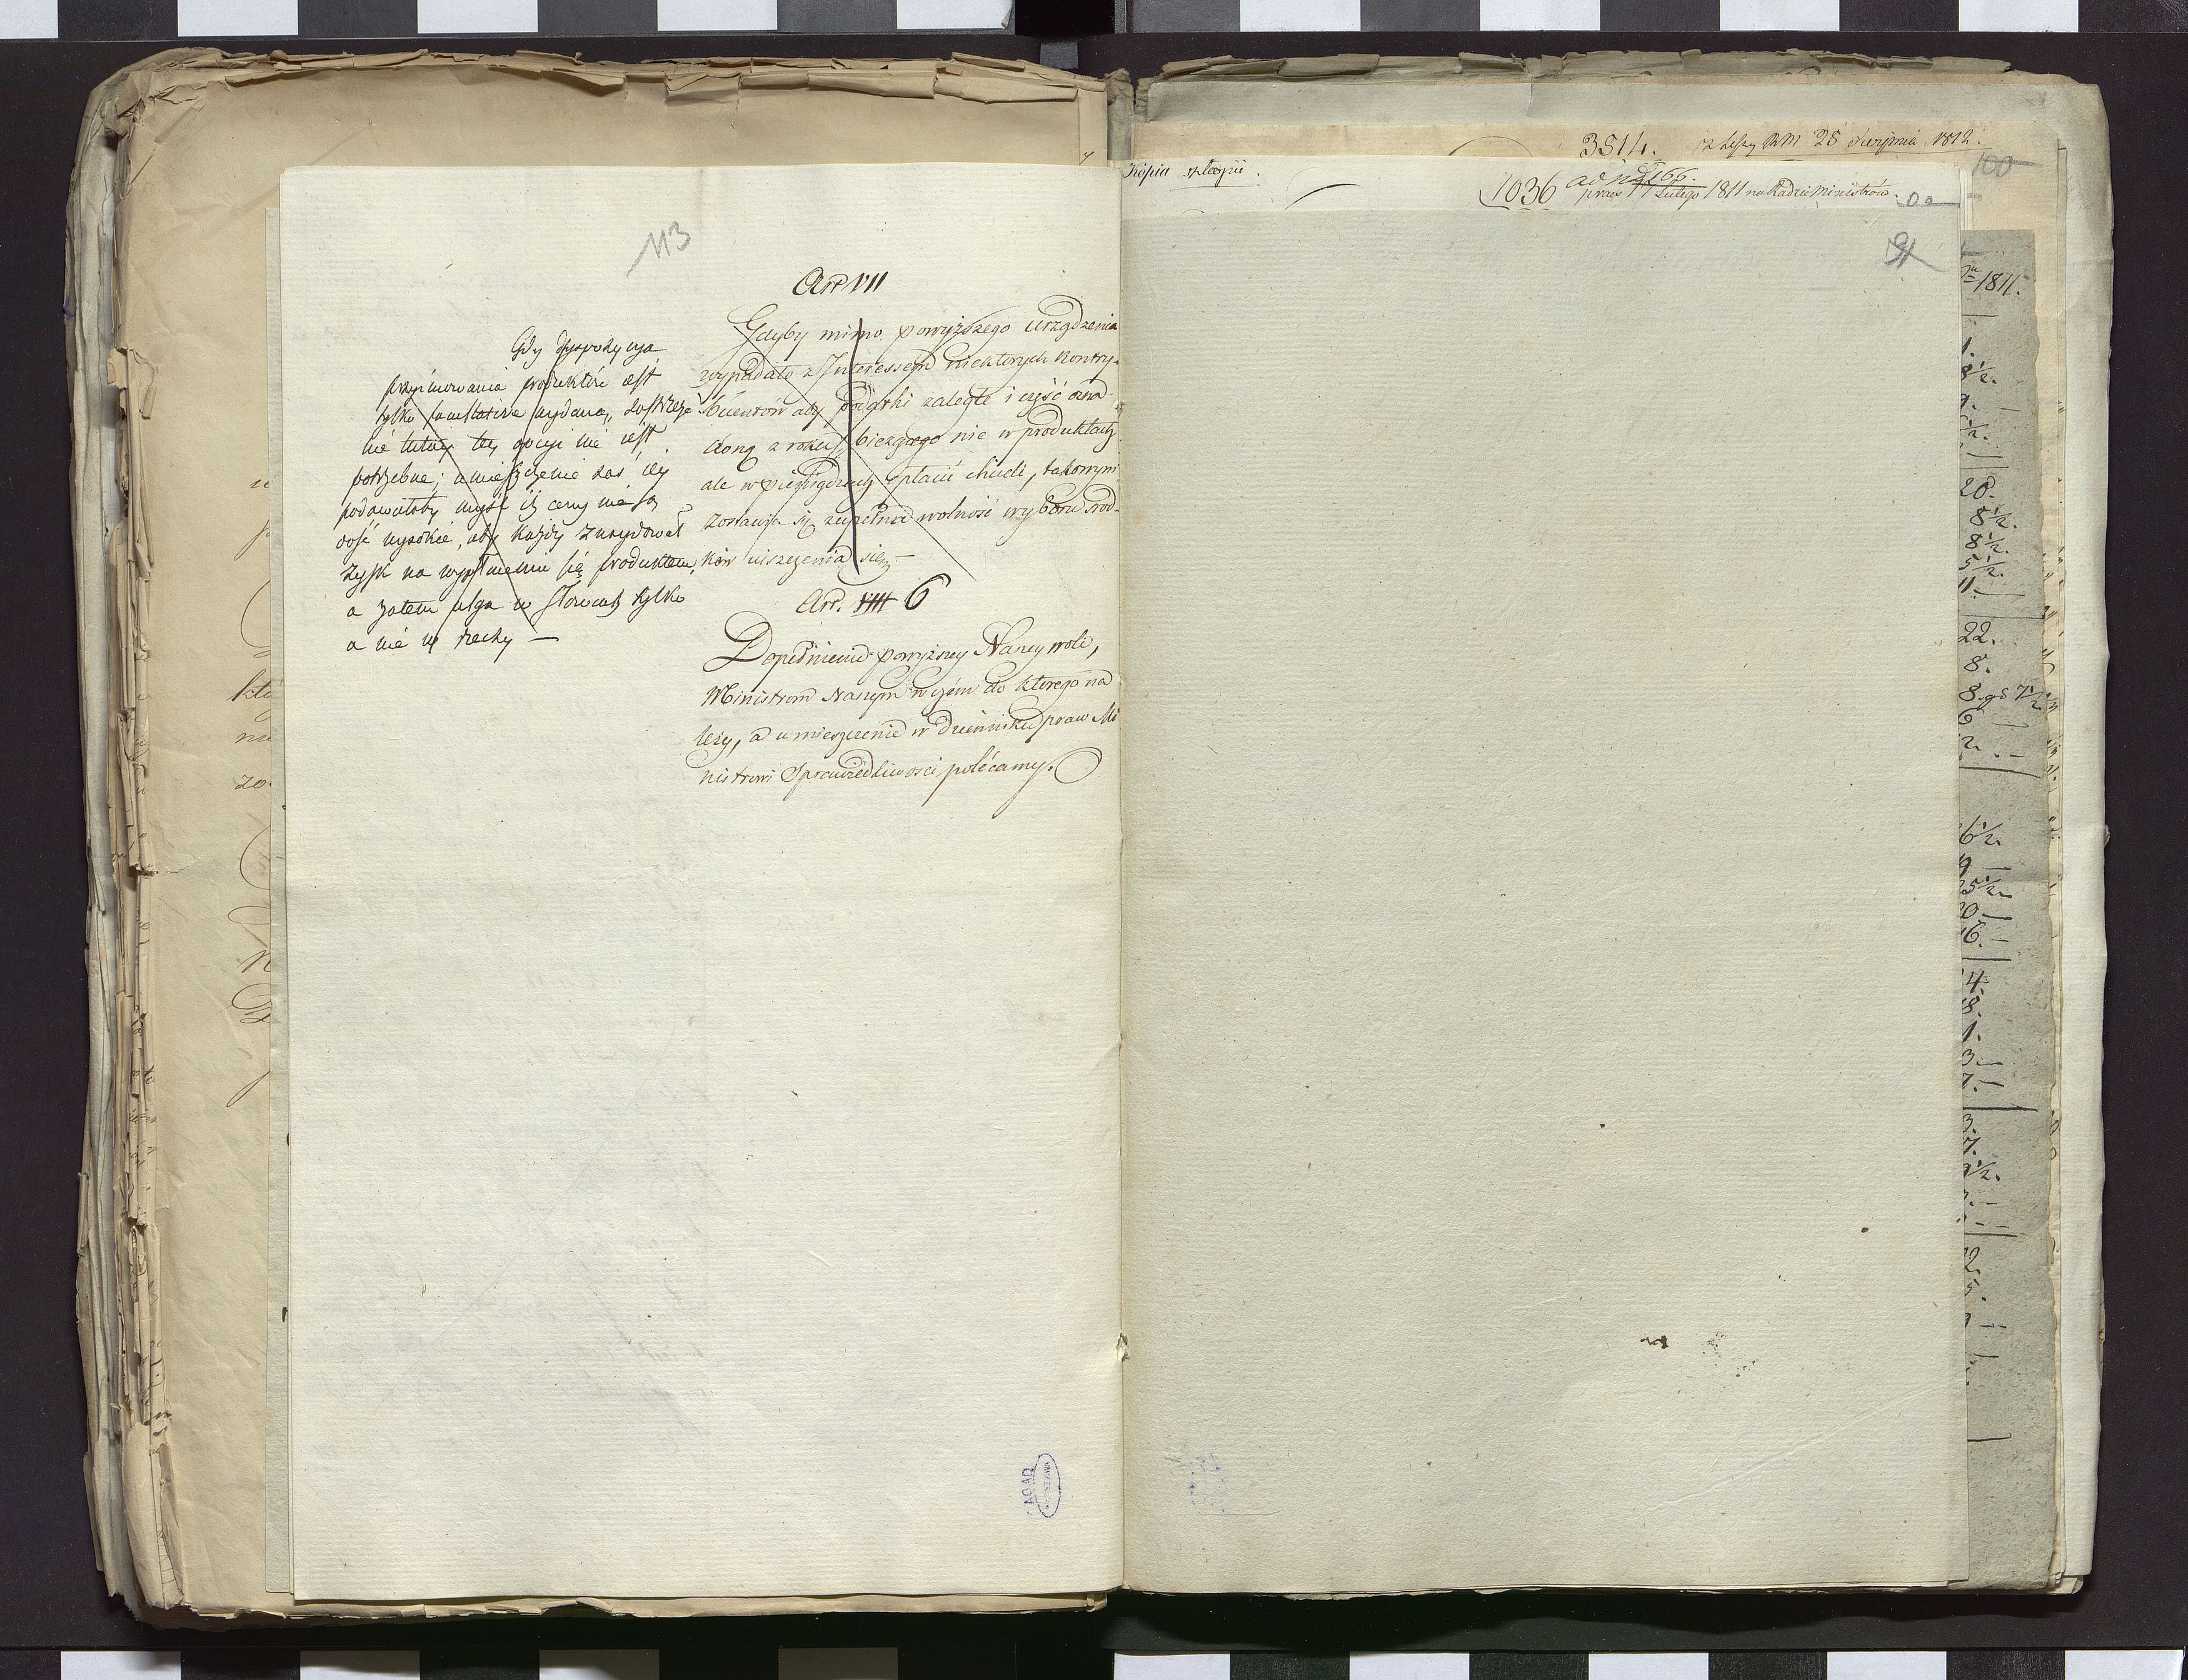 113
Art VII
Gdyby mimo powyższego urządzenia
wypadało z Interessem niektórych Kontry-
buentów aby podatki zaległe i część ozna-
czoną z roku bieżącego nie w produktach
ale w pieniądzach płacić chcieli, takowym
zostawia się zupełna wolność wyboru środ-
ków uiszczenia się
Gdy dyspozycya
przyimowania produktów iest
tylko facultative wydana,
nie tej opcyi nie iest
potrzebne; umieszczenie zaś iey
podawałoby myśl iż ceny nie są
dość wysokie, aby każdy znaydował
zysk na wypłaceniu się produktem,
a zatem ulga w słowach tylko
a nie w rzeczy —
Art. VIII 6
Dopełnienie powyższey Naszey woli,
Ministrom Naszym w czém do którego na
leży, a umieszczenie w dzienniku praw Mi
nistrowi Sprawiedliwości polécamy.
AGAD
3514. 25 Sierpnia 1812.
100
Kopia
1036 ad N 2166.
praes 17 Lutego 1811 na Radzie Ministrów.
91
1811.
8½.
20.
8½.
8½.
5½.
11.
22.
8.
8 gs 7½
6
2.
6½.
9
25½
20
16.
4.
8.
1.
3.
7.
3.
7.
½.
2.
5.